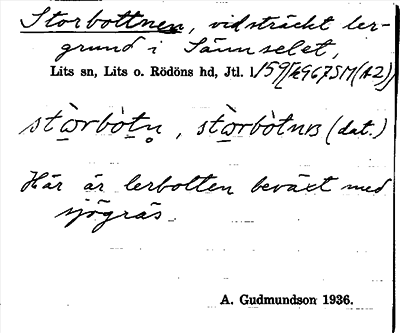 Storbottnen, vidsträckt ler-
grund i Sännselet,
Lits sn, Lits o. Rödöns hd, Jtl.
stòrbòtn̥, stòrbòtnɴ (dat.)
Här är lerbotten beväxt med
sjögräs.
A. Gudmundson 1936.